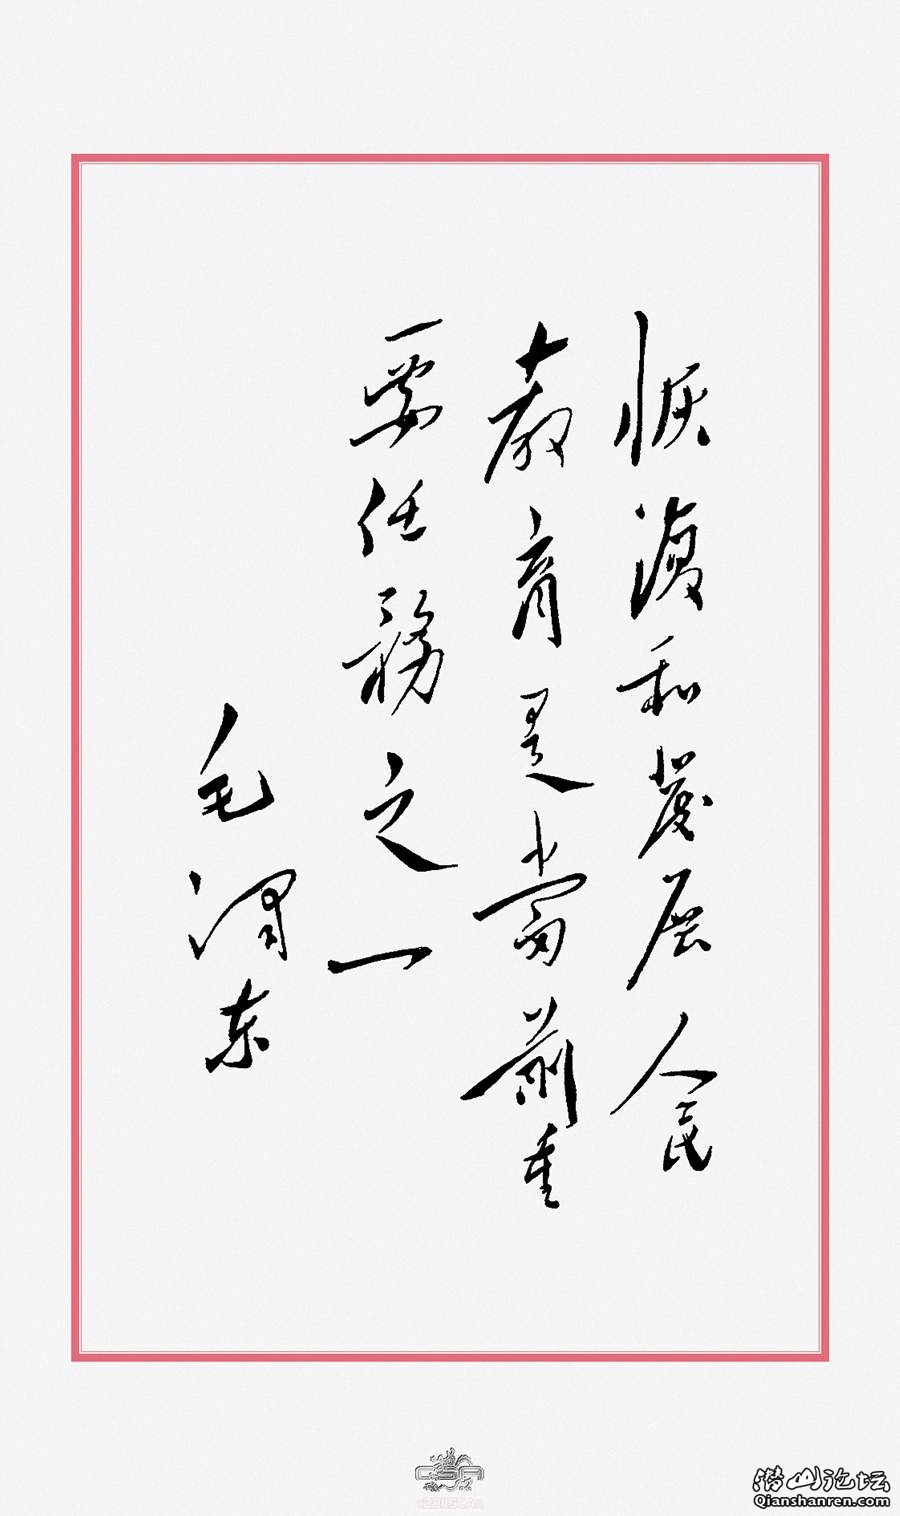 恢復和發展人民
教育是當前重
要任務之一
毛澤东
潜山论坛
Qianshanren.com